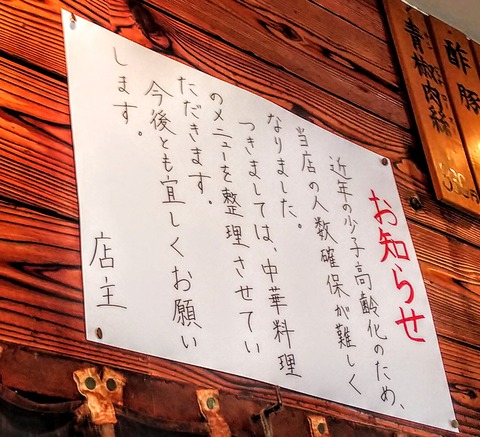 酢豚
青椒肉絲
お知らせ
近年の少子高齢化のため、
当店の人数確保が難しく
なりました。
つきましては、中華料理
のメニューを整理させてい
ただきます。
今後とも宜しくお願い
します。
店主